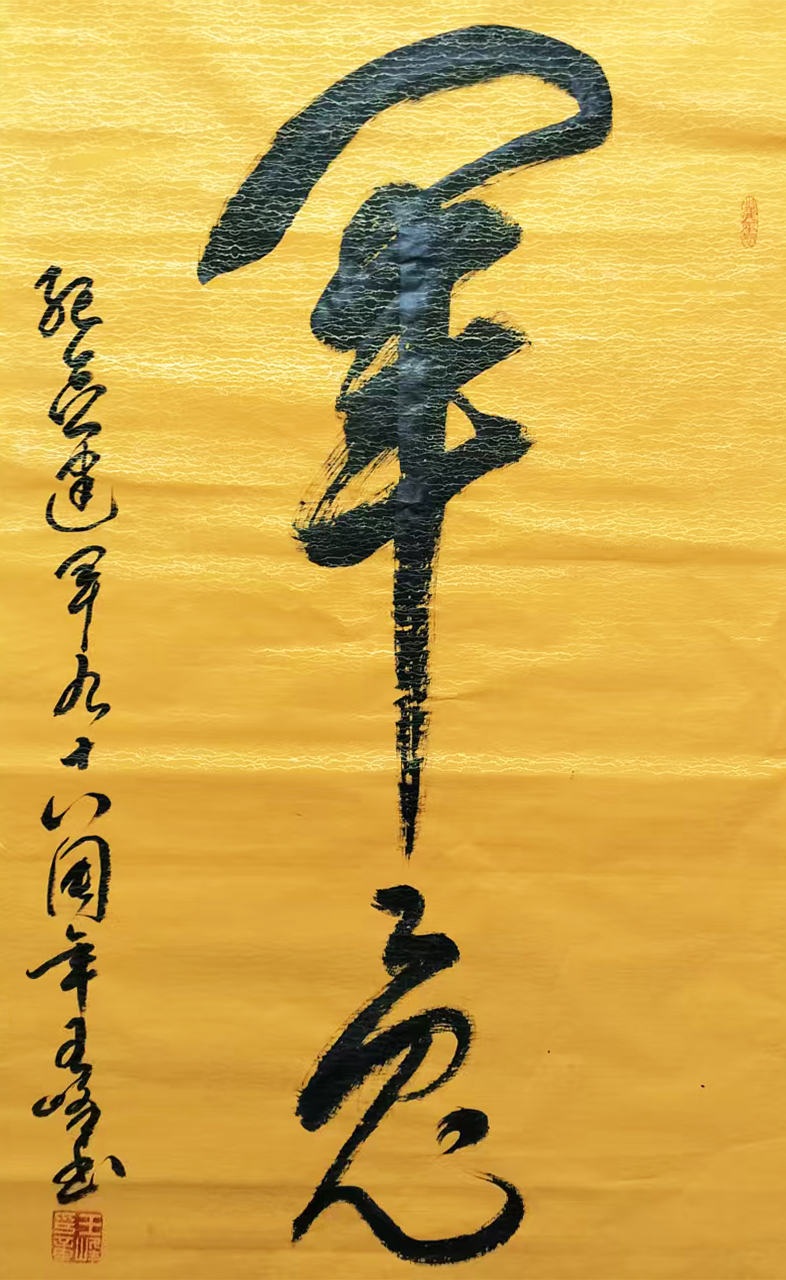 军魂
纪念建军九十八周年王峰书
王峰